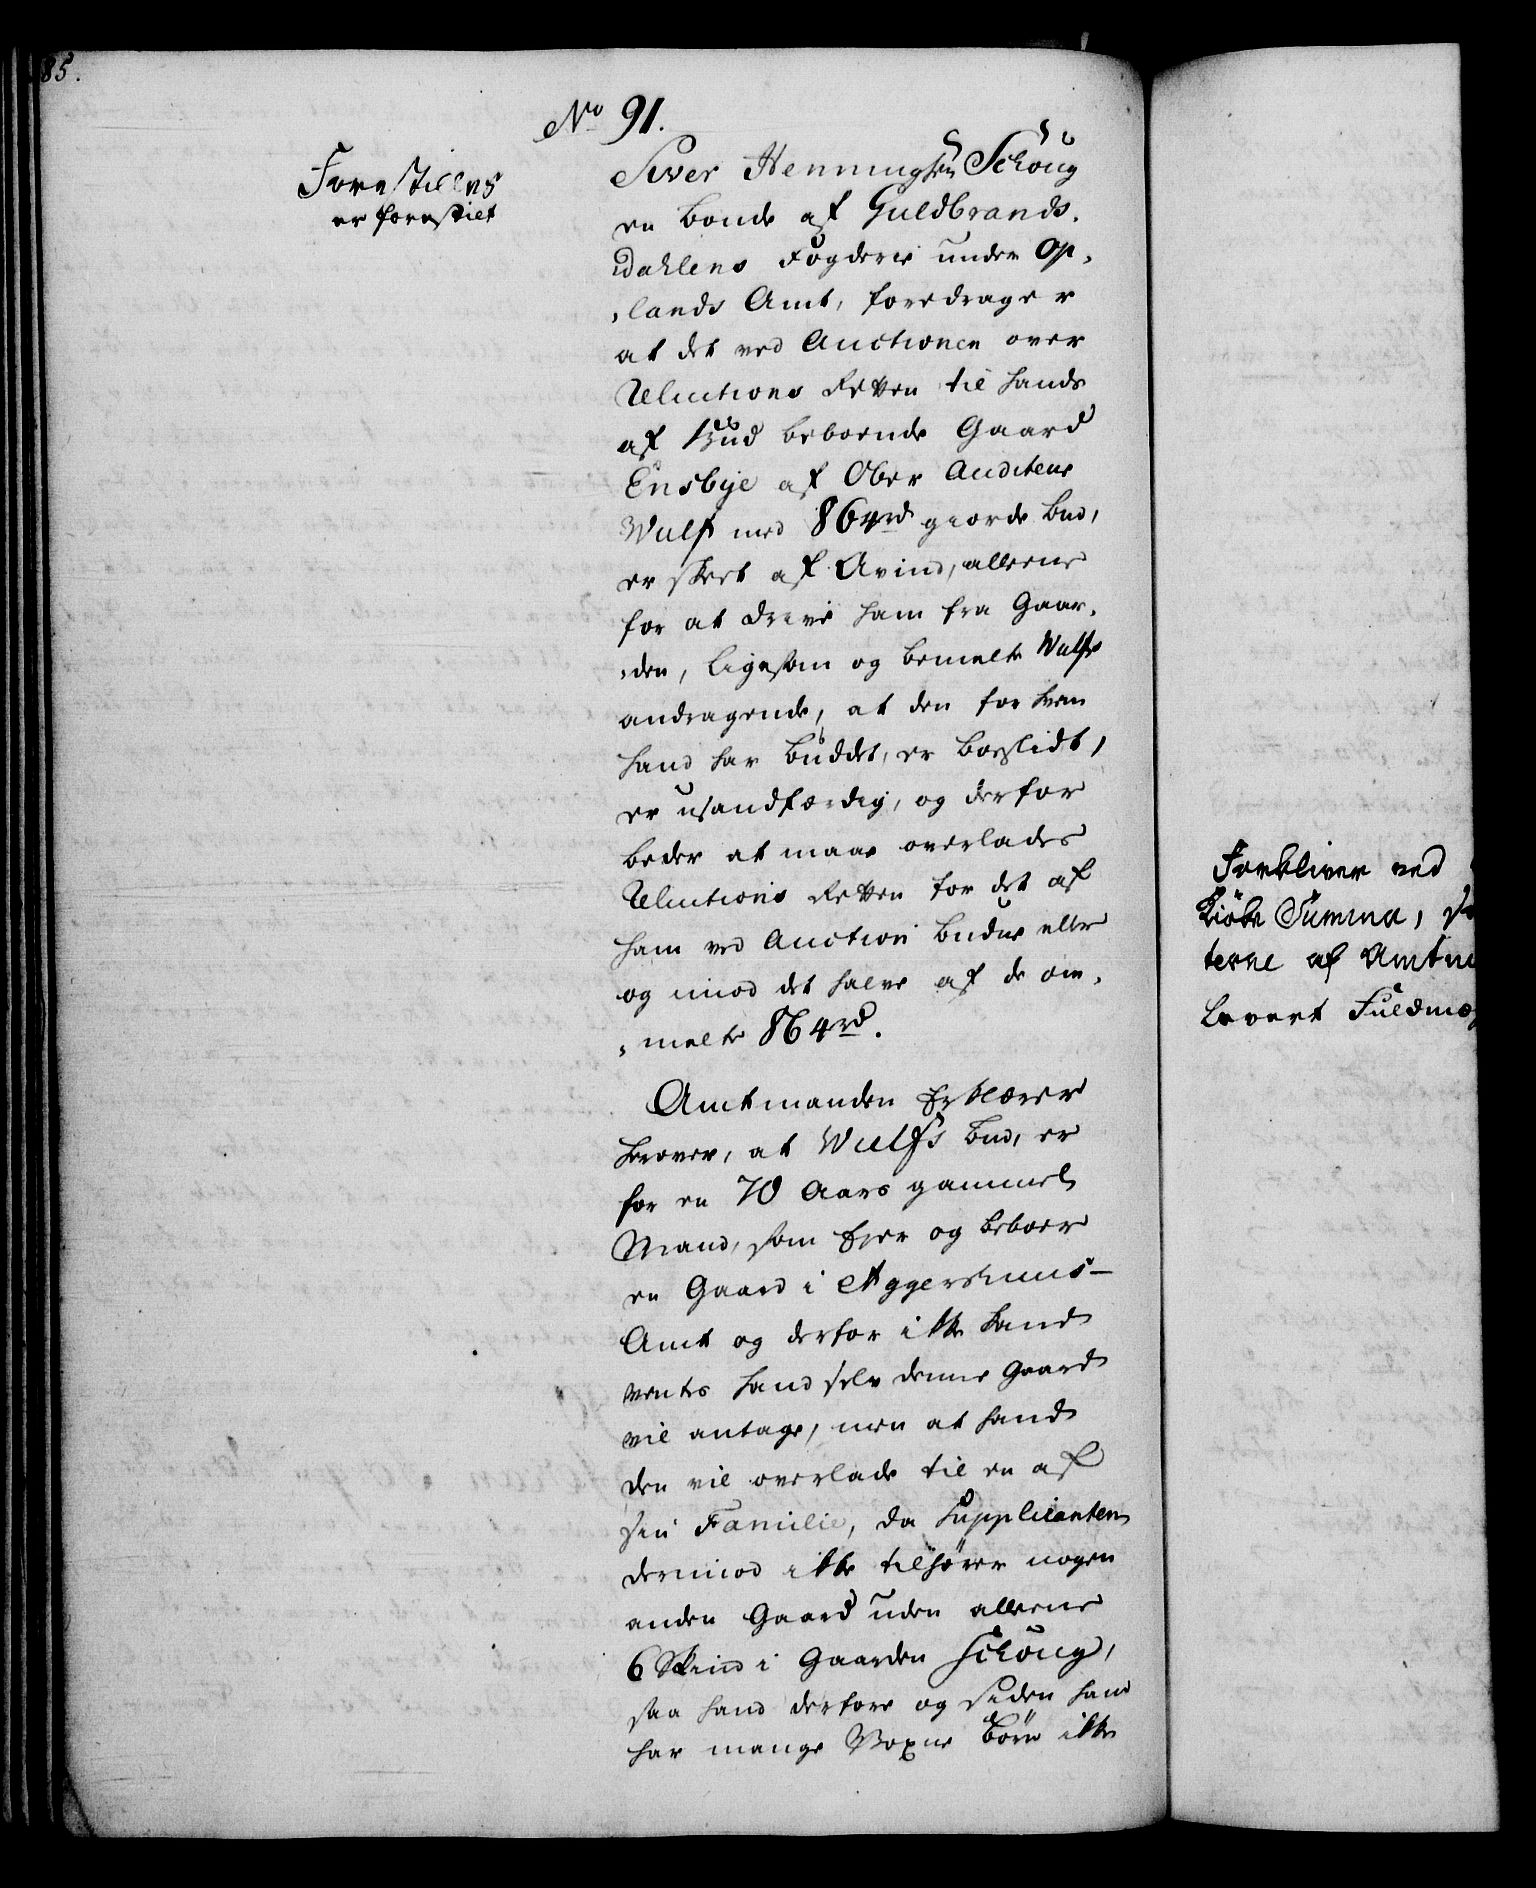 85.
No 91.
Forestilles
er forestilt
Siver Henningsen Schoug
en Bonde af Guldbrands,
dahlens Fogderie under Op,
,lands Amt, foredrager
at det ved Auctionen over
Reluitions Retten til hands
af Bud beboende Gaard
Ensbye af Ober Auditeur
Wulf med 864rd giorde bud,
er skeet af Avind, alleene
for at drive ham fra Gaar,
,den, ligesom og bemelte Wulfs
andragende, at den for hvem
hand har buddet, er boeslidt,
er usandfærdig, og derfor
beder at maae overlades
Reluitions Retten for det af
ham ved Auction budne eller
og imod det halve af de om,
,melte 864rd.
Amtmanden Erklærer
herover, at Wulfs bud, er
for en 70 Aars gammel
Mand, som Ejer og beboer
en Gaard i Aggershuus-
Amt og derfor ikke kand
ventes hand selv denne Gaard
vil antage, men at hand
den vil overlade til en af
sin Familie, da Supplicanten
derimod ikke tilhører nogen
anden Gaard uden alleene
6 Skind i Gaarden Schoug,
saa hand derfore og siden hand
har mange Voxne Børn ikke
Forbliver ved
Kiøbe Summa,
terne af Amtm
levert Fuldmæg